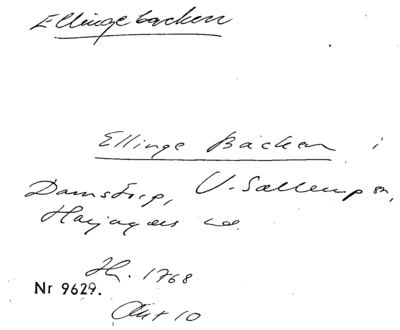 Ellingebacken
Ellinge Bäcken i
Damstorp, V. Sallerup sn,
Harjagers
H. 1768
Nr 9629.
Akt 10